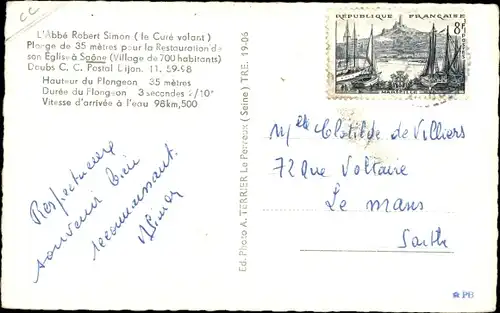 CC
L'Abbé Robert Simon (le Curé volant)
Plonge de 35 mètres pour la Restauration de
son Église à Saône (Village de 700 habitants)
Doubs C. C. Postal Dijon. 11.59-98
Hauteur du Plongeon 35 mètres
Durée du Plongeon 3 secondes 2/10°
Vitesse d'arrivée à l'eau 98km,500
Respectueux
souvenir bien
reconnaissant.
RSimon
Ed. Photo A. TERRIER Le Perreux (Seine) TRE. 19-06
RÉPUBLIQUE FRANÇAISE
8F
POSTES
MARSEILLE
Melle Clotilde de Villiers
72 Rue Voltaire
Le Mans
Sarthe
PB